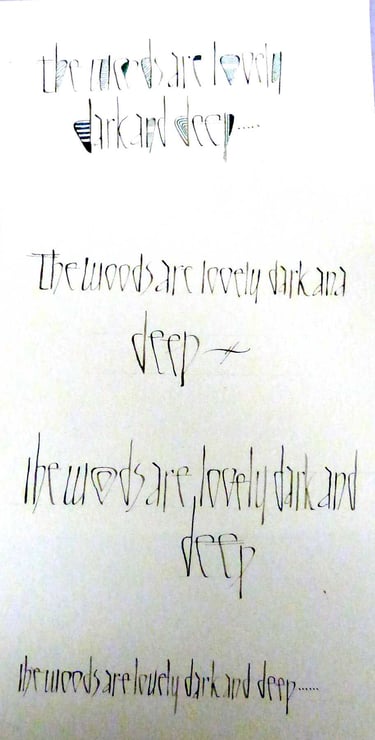 the woods are lovely
dark and deep.....
The woods are lovely dark and
deep
The woods are, lovely dark and
deep
the woods are lovely dark and deep......